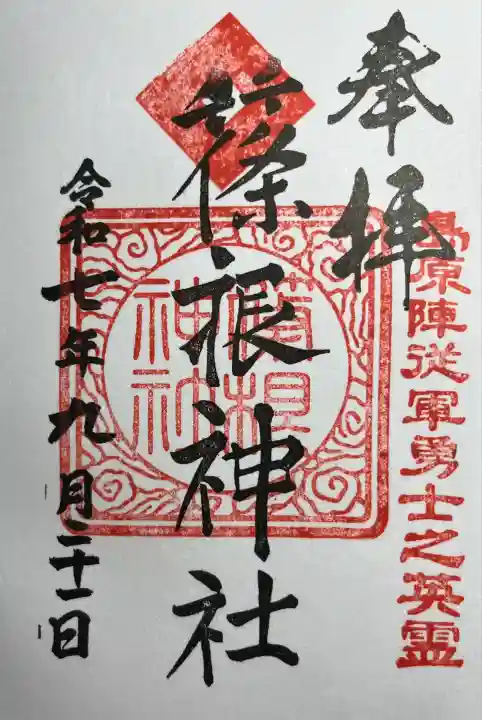 奉拝
島原陣従軍勇士之英霊
篠根神社
篠根
神社
令和七年九月二十一日